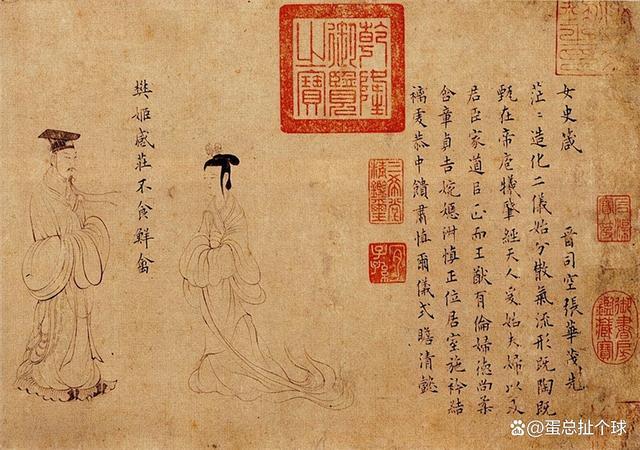 女史箴 晉司空張華茂先
茫〻造化二儀始分散氣流形既陶既
甄在帝庖犧肇經天人爰始夫婦以及
君臣家道㠯正而王猷有倫婦德尚柔
含章貞吉婉嫕淑慎正位居室施衿結
褵虔恭中饋肅慎爾儀式瞻清懿
乾隆御覽之寶
三希堂精鑑璽
宜子孫
石渠寶笈
御書房鑑藏寶
樊姬感莊不食鮮禽
@蛋总扯个球